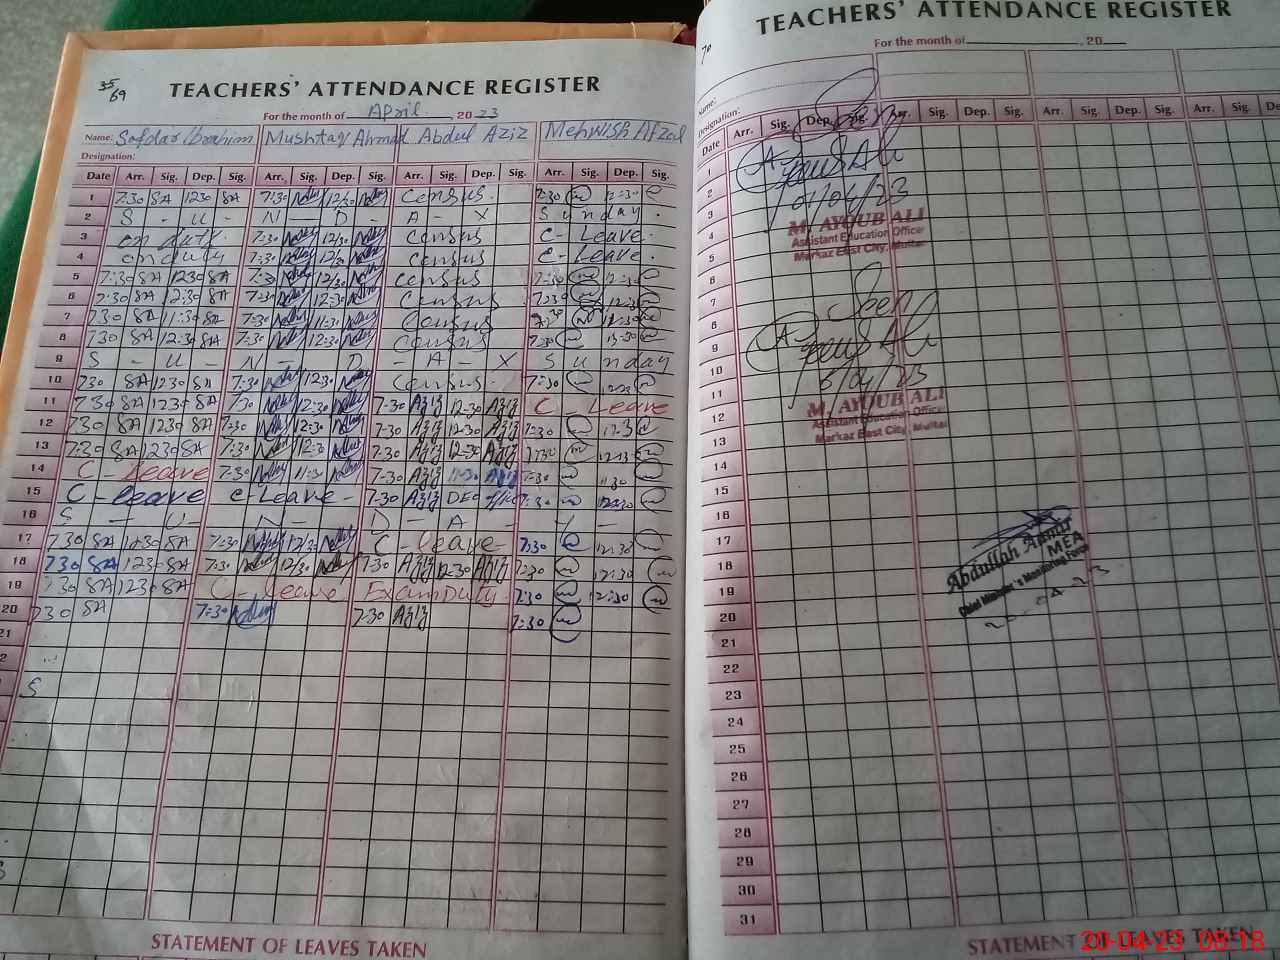 35/69
TEACHERS' ATTENDANCE REGISTER
For the month of April, 2023
Name: Safdar Ibrahim Mushtaq Ahmad Abdul Aziz Mehwish Afzal
Designation:
Date Arr. Sig. Dep. Sig. Arr. Sig. Dep. Sig. Arr. Sig. Dep. Sig. Arr. Sig. Dep. Sig.
1 7:30 SA 12:30 SA 7:30 12:30 Census. 7:30 12:30
2 S - U - N - D - A - Y Sunday.
3 on duty. 7:30 12:30 Census C-Leave.
4 on duty 7:30 12:30 Census C-Leave.
5 7:30 SA 12:30 SA 7:30 12:30 Census 7:30 12:30
6 7:30 SA 12:30 SA 7:30 12:30 Census 7:30 12:30
7 7:30 SA 11:30 SA 7:30 11:30 Census 7:30 11:30
8 7:30 SA 12:30 SA 7:30 12:30 Census 7:30 12:30
9 S - U - N - D - A - Y Sunday
10 7:30 SA 12:30 SA 7:30 12:30 Census. 7:30
11 7:30 SA 12:30 SA 7:30 12:30 7:30 Aziz 12:30 Aziz C-Leave
12 7:30 SA 12:30 SA 7:30 12:30 7:30 Aziz 12:30 Aziz 7:30
13 7:30 SA 12:30 SA 7:30 12:30 7:30 Aziz 12:30 Aziz 7:30
14 C-leave 7:30 11:30 7:30 Aziz 11:30 Aziz 7:30 11:30
15 C-leave C-Leave- 7:30 Aziz DEO office 7:30 12:30
16 S - U - N - D - A - Y -
17 7:30 SA 12:30 SA 7:30 12:30 C-leave- 7:30 12:30
18 7:30 SA 12:30 SA 7:30 12:30 7:30 Aziz 12:30 Aziz 7:30 12:30
19 7:30 SA 12:30 SA C-leave Exam Duty 7:30 12:30
20 7:30 SA 7:30 7:30 Aziz 7:30
21
2
S
STATEMENT OF LEAVES TAKEN
70
TEACHERS' ATTENDANCE REGISTER
For the month of , 20
Name:
Designation:
Date Arr. Sig. Dep. Sig. Arr. Sig. Dep. Sig. Arr. Sig. Dep. Sig. Arr. Sig. De
1
2
3
4
5
6
7
8
9
10
11
12
13
14
15
16
17
18
19
20
21
22
23
24
25
26
27
28
29
30
31
Seen
01/04/23
M. AYOUB ALI
Assistant Education Officer
Markaz East City, Multan
Seen
M. AYOUB ALI
Assistant Education Officer
Markaz East City, Multan
Abdullah
MEA
Chief Minister's Monitoring Force
STATEMENT OF LEAVES TAKEN
20-04-23 08:18